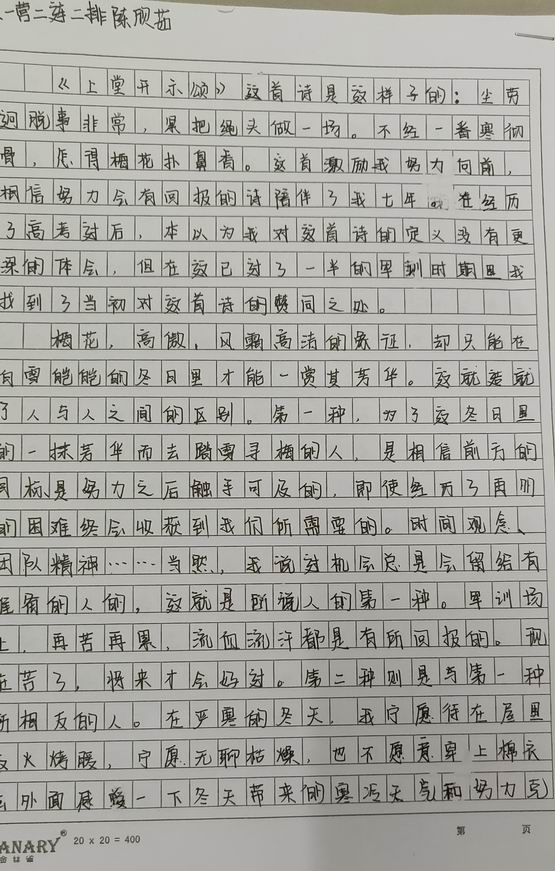 一营二连二排陈欣茹
《上堂开示颂》这首诗是这样子的：尘劳
迥脱事非常，紧把绳头做一场。不经一番寒彻
骨，怎得梅花扑鼻香。这首激励我努力向前，
相信努力会有回报的诗陪伴了我七年。在经历
了高考过后，本以为我对这首诗的定义没有更
深的体会，但在这已过了一半的军训时期里我
找到了当初对这首诗的赞同之处。
梅花，高傲，风霜高洁的象征，却只能在
白雪皑皑的冬日里才能一赏其芳华。这就造就
了人与人之间的区别。第一种，为了这冬日里
的一抹芳华而去踏雪寻梅的人，是相信前方的
目标是努力之后触手可及的，即使经历了再多
的困难终会收获到我们所需要的。时间观念、
团队精神……当然，我说过机会总是会留给有
准备的人的，这就是所说人的第一种。军训场
上，再苦再累，流血流汗都是有所回报的。现
在苦了，将来才会好过。第二种则是与第一种
所相反的人。在严寒的冬天，我宁愿待在屋里
火烤暖，宁愿无聊枯燥，也不愿意穿上棉衣
去外面感受一下冬天带来的寒冷天气和努力克
ANARY® 20 x 20 = 400 第 页